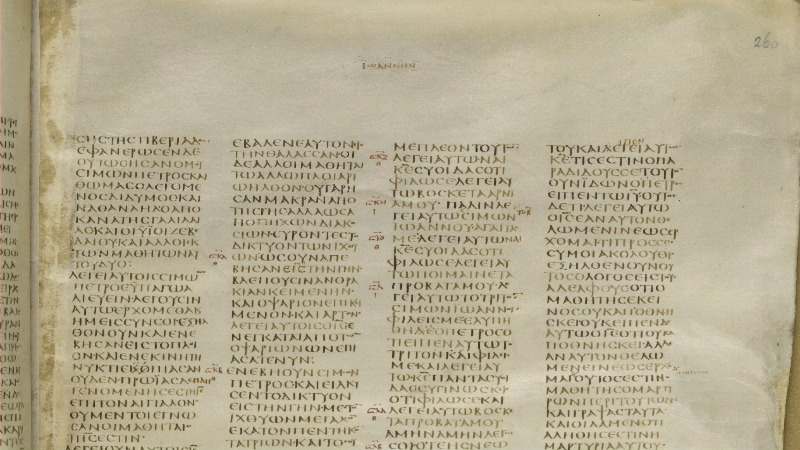 260
ΙΩΑΝΝΗΝ
ϹΗϹΤΗϹΤΙΒΕΡΙΑΔ
ΕΦΑΝΕΡΩϹΕΝΔΕ
ΟΥΤΩϹΗϹΑΝΟΜΟΥ
ϹΙΜΩΝΠΕΤΡΟϹΚΑΙ
ΘΩΜΑϹΟΛΕΓΟΜΕ
ΝΟϹΔΙΔΥΜΟϹΚΑΙ
ΝΑΘΑΝΑΗΛΟΑΠΟ
ΚΑΝΑΤΗϹΓΑΛΙΛΑΙ
ΑϹΚΑΙΟΙΥΙΟΙΖΕΒΕ
ΔΑΙΟΥΚΑΙΑΛΛΟΙΕΚ
ΤΩΝΜΑΘΗΤΩΝΑΥ
ΤΟΥΔΥΟ
ΛΕΓΕΙΑΥΤΟΙϹϹΙΜΩ
ΠΕΤΡΟϹΥΠΑΓΩΑ
ΛΙΕΥΕΙΝΛΕΓΟΥϹΙΝ
ΑΥΤΩΕΡΧΟΜΕΘΑΚ
ΗΜΕΙϹϹΥΝϹΟΙΕΞΗΛ
ΘΟΝΟΥΝΚΑΙΕΝΕ
ΒΗϹΑΝΕΙϹΤΟΠΛΟΙ
ΟΝΚΑΙΕΝΕΚΙΝΗΤΗ
ΝΥΚΤΙΕΚΟΠΙΑϹΑΝ
ΟΥΔΕΝΠΡΩΙΑϹΔΕ
ΓΕΝΟΜΕΝΗϹΕϹΤΗ
ΕΠΙΤΟΝΑΙΓΙΑΛΟΝ
ΟΥΜΕΝΤΟΙΕΓΝΩ
ϹΑΝΟΙΜΑΘΗΤΑΙ
ΕΒΑΛΕΝΕΑΥΤΟΝΕΙϹ
ΤΗΝΘΑΛΑϹϹΑΝΟΙ
ΔΕΑΛΛΟΙΜΑΘΗΤΑΙ
ΤΩΑΛΛΩΠΛΟΙΑΡΙ
ΩΗΛΘΟΝΟΥΓΑΡΗ
ϹΑΝΜΑΚΡΑΝΑΠΟ
ΤΗϹΓΗϹΑΛΛΑΩϹΑ
ΠΟΠΗΧΩΝΔΙΑΚΟ
ϹΙΩΝϹΥΡΟΝΤΕϹΤΟ
ΔΙΚΤΥΟΝΤΩΝΙΧΘΥ
ΩΝΩϹΟΥΝΑΠΕ
ΒΗϹΑΝΕΙϹΤΗΝΓΗΝ
ΒΛΕΠΟΥϹΙΝΑΝΘΡΑ
ΚΙΑΝΚΕΙΜΕΝΗΝ
ΚΑΙΟΨΑΡΙΟΝΕΠΙΚΕΙ
ΜΕΝΟΝΚΑΙΑΡΤΟΝ
ΛΕΓΕΙΑΥΤΟΙϹΟΙϹ
ΕΝΕΓΚΑΤΑΙΑΠΟΤΩ
ΟΨΑΡΙΩΝΩΝΕΠΙ
ΑϹΑΤΑΙΝΥΝ
ΕΝΕΒΗΟΥΝϹΙΜΩΝ
ΠΕΤΡΟϹΚΑΙΕΙΛΚΥ
ϹΕΝΤΟΔΙΚΤΥΟΝ
ΕΙϹΤΗΝΓΗΝΜΕϹΤΟ
ΙΧΘΥΩΝΜΕΓΑΛΩ
ΕΚΑΤΟΝΠΕΝΤΗΚΟ
ΤΑΤΡΙΩΝΚΑΙΤΟϹΟΥ
ΜΕΠΛΕΟΝΤΟΥΤΩ
ΛΕΓΕΙΑΥΤΩΝΑΙ
ΚΕϹΥΟΙΔΑϹΟΤΙ
ΦΙΛΩϹΕΛΕΓΕΙΑΥ
ΤΩΒΟϹΚΕΤΑΑΡΝΙ
ΑΜΟΥΠΑΛΙΝΛΕ
ΓΕΙΑΥΤΩϹΙΜΩΝ
ΙΩΑΝΝΟΥΑΓΑΠΑϹ
ΜΕΛΕΓΕΙΑΥΤΩΝΑΙ
ΚΕϹΥΟΙΔΑϹΟΤΙ
ΦΙΛΩϹΕΛΕΓΕΙΑΥ
ΤΩΠΟΙΜΑΙΝΕΤΑ
ΠΡΟΒΑΤΑΜΟΥΛΕ
ΓΕΙΑΥΤΩΤΟΤΡΙΤΟ
ϹΙΜΩΝΙΩΑΝΝΟΥ
ΦΙΛΕΙϹΜΕΕΛΥΠΗ
ΘΗΔΕΟΠΕΤΡΟϹΟ
ΤΙΕΙΠΕΝΑΥΤΩΤΟ
ΤΡΙΤΟΝΚΑΙΦΙΛΙϹ
ΜΕΚΑΙΛΕΓΕΙΑΥ
ΤΩΚΕΠΑΝΤΑϹΥ
ΟΙΔΑϹϹΥΓΙΝΩϹΚΙϹ
ΟΤΙΦΙΛΩϹΕΚΑΙ
ΛΕΓΕΙΑΥΤΩΒΟϹΚΕ
ΤΑΠΡΟΒΑΤΑΜΟΥ
ΑΜΗΝΑΜΗΝΛΕΓΩ
ϹΟΙΟΤΕΗϹΝΕΩ
ΤΟΥΚΑΙΛΕΓΕΙΑΥΤΩ
ΚΕΤΙϹΕϹΤΙΝΟΠΑ
ΡΑΔΙΔΟΥϹϹΕΤΟΥΤΟ
ΟΥΝΙΔΩΝΟΠΕΤΡΟϹ
ΕΙΠΕΝΤΩΙΥΟΥΤΟϹ
ΔΕΤΙΛΕΓΕΙΑΥΤΩ
ΟΙϹΕΑΝΑΥΤΟΝΘΕ
ΛΩΜΕΝΙΝΕΩϹΕΡ
ΧΟΜΑΙΤΙΠΡΟϹϹΕ
ϹΥΜΟΙΑΚΟΛΟΥΘΙ
ΕΞΗΛΘΕΝΟΥΝΟΥ
ΤΟϹΟΛΟΓΟϹΕΙϹΤΟΥϹ
ΑΔΕΛΦΟΥϹΟΤΙΟ
ΜΑΘΗΤΗϹΕΚΕΙ
ΝΟϹΟΥΚΑΠΟΘΝΗ
ϹΚΕΙΟΥΚΕΙΠΕΝΔΕ
ΑΥΤΩΟΙϹΟΤΙΟΥΚΑ
ΠΟΘΝΗϹΚΕΙΑΛΛΑ
ΑΝΑΥΤΟΝΘΕΛΩ
ΜΕΝΕΙΝΕΩϹΕΡΧΟ
ΜΑΙΟΥΤΟϹΕϹΤΙΝΟ
ΜΑΘΗΤΗϹΟΜΑΡΤΥ
ΡΩΝΠΕΡΙΤΟΥΤΩΝ
ΚΑΙΓΡΑΨΑϹΤΑΥΤΑ
ΚΑΙΟΙΔΑΜΕΝΟΤΙ
ΑΛΗΘΗϹΕϹΤΙΝΗ
ΜΑΡΤΥΡΙΑΑΥΤΟΥ